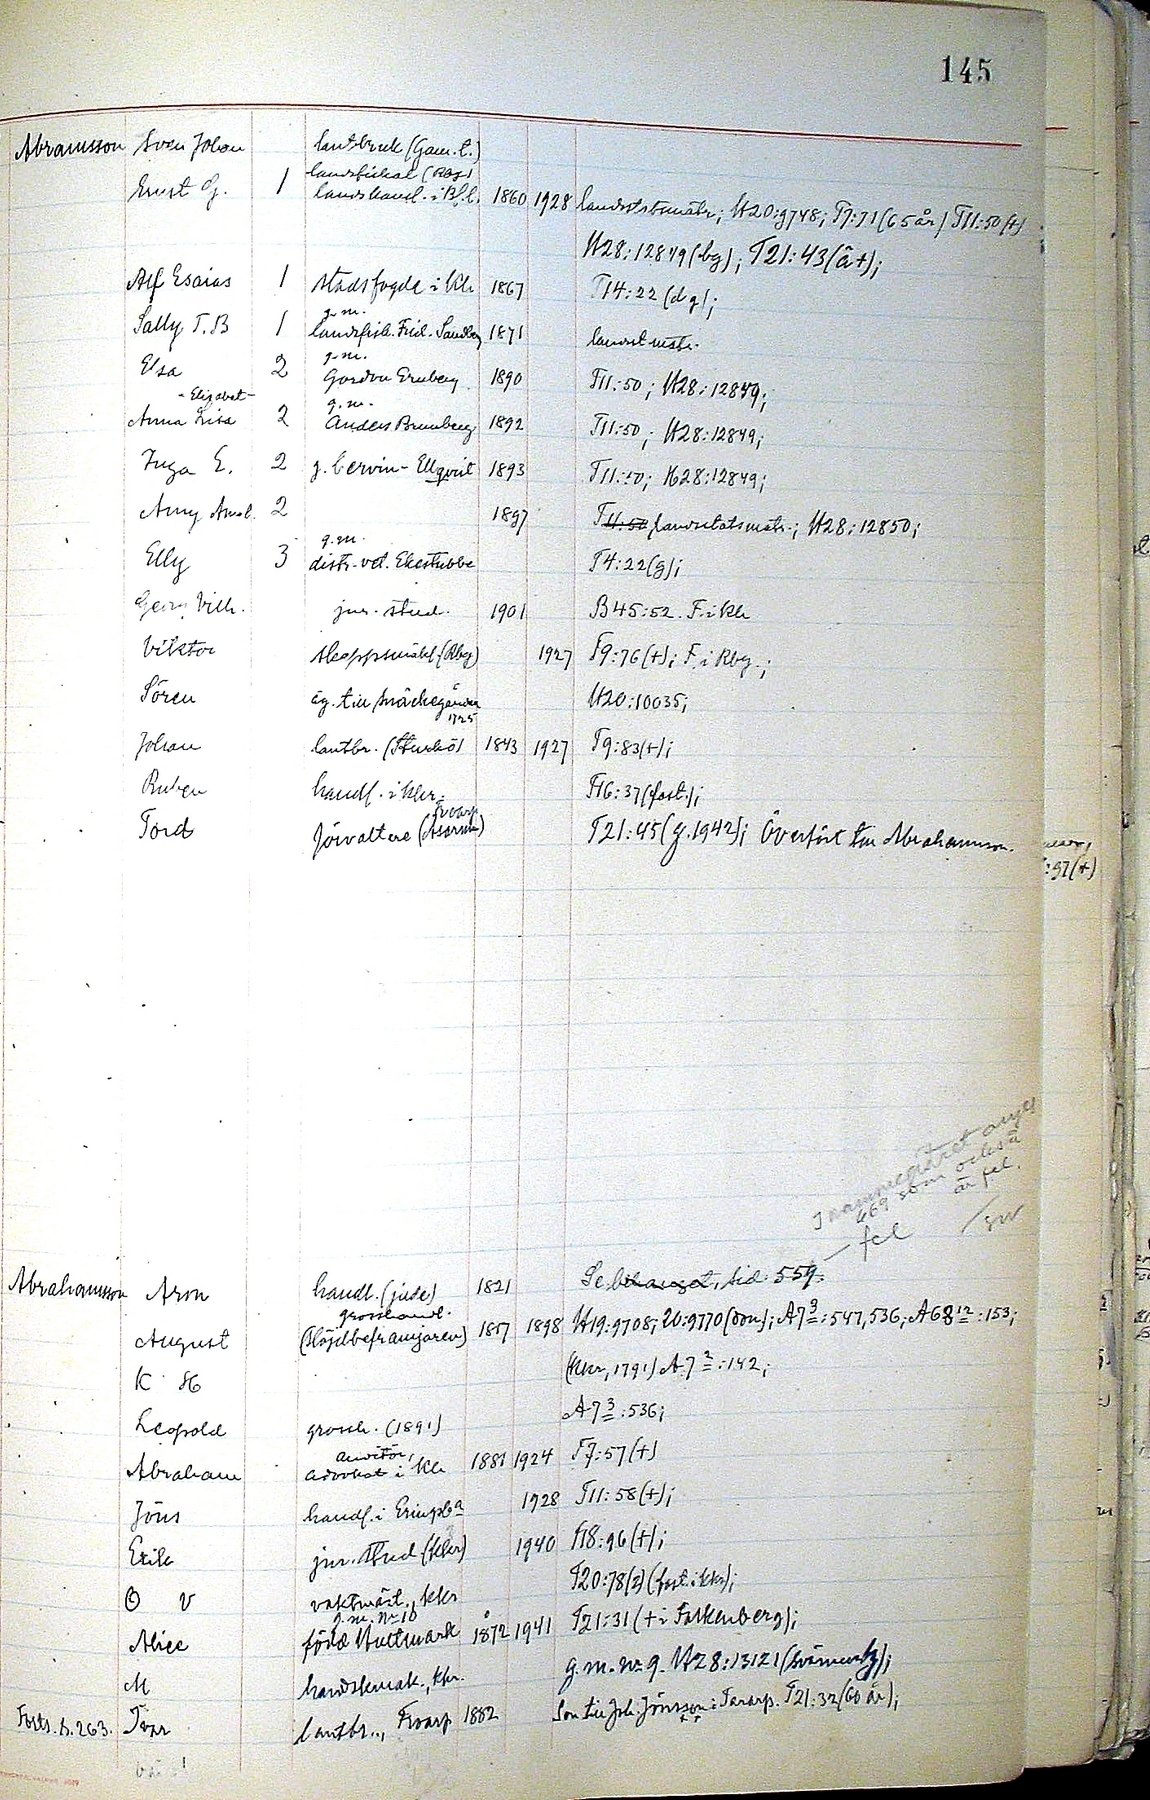 145
Abramsson Sven Johan lantbruk (Gam. t.)
landsfiskal (Rbg)
Ernst G. 1 landskansl. i Bl. l. 1860 1928 landstatsmatr.; H20:9748; T7:71 (65 år) T11:50 (+)
H28:12849 (bg); T21:43 (å+);
Alf Esaias 1 stadsfogde i Kh 1867 T14:22 (dg);
g. m.
Sally T. B 1 landsfisk. Frid. Sandberg 1871 landst matr.
g. m.
Elsa 2 Gordon Grnberg 1890 T11:50; H28:12849;
- Elisabet - g. m.
Anna Lisa 2 Anders Brunberg 1892 T11:50; H28:12849;
Inga E. 2 g. Cervin-Ellqvist 1893 T11:50; H28:12849;
Amy Amal. 2 1897 T11:50 landstatsmatr.; H28:12850;
g. m.
Elly 3 distr.-vet. Ekestubbe T4:22 (g);
Georg Vilh. jur. stud. 1901 B45:52. F. i Kh
Viktor skeppsmäkl. (Rbg) 1927 T9:76 (+); F. i Rbg.;
Sören äg. till 1725 H20:10035;
Johan lantbr. (Sturkö) 1843 1927 T9:83 (+);
Ruben handl. i Khr. T16:37 (fast.);
Tvarp
Tord förvaltare (Asarum) T21:45 (g. 1942); Överfört till Abrahamson.
:97 (+)
I namnregistret anges
469 som också
är fel.
- fel /SW
Abrahamsson Aron handl. (jude) 1821 Se bihanget, sid. 559.
grosshandl.
August (Slöjdbefrämjaren) 1817 1898 H19:9708; 20:9770 (son); A7 3:547, 536; A68 12:153;
K H (Khr, 1791) A7 2:142;
Leopold grossh. (1891) A7 3:536;
auditör,
Abraham advokat i Kh 1881 1924 T7:57 (+)
Jöns handl. i Eringsb-a 1928 T11:58 (+);
Erik jur. stud (Khr) 1940 T18:96 (+);
O V vaktmäst., Khr T20:78 (2) (fast. i Khr);
g. m. Nr 10
Alice född Hultmark 1872 1941 T21:31 (+ i Falkenberg);
M handskmak., Khr. g. m. Nr 9. H28:13121 (svärmor);
Forts. s. 263. Ivar lantbr., Tvarp 1882 Son till Joh. Jönsson i Tararp. T21:32 (60 år);